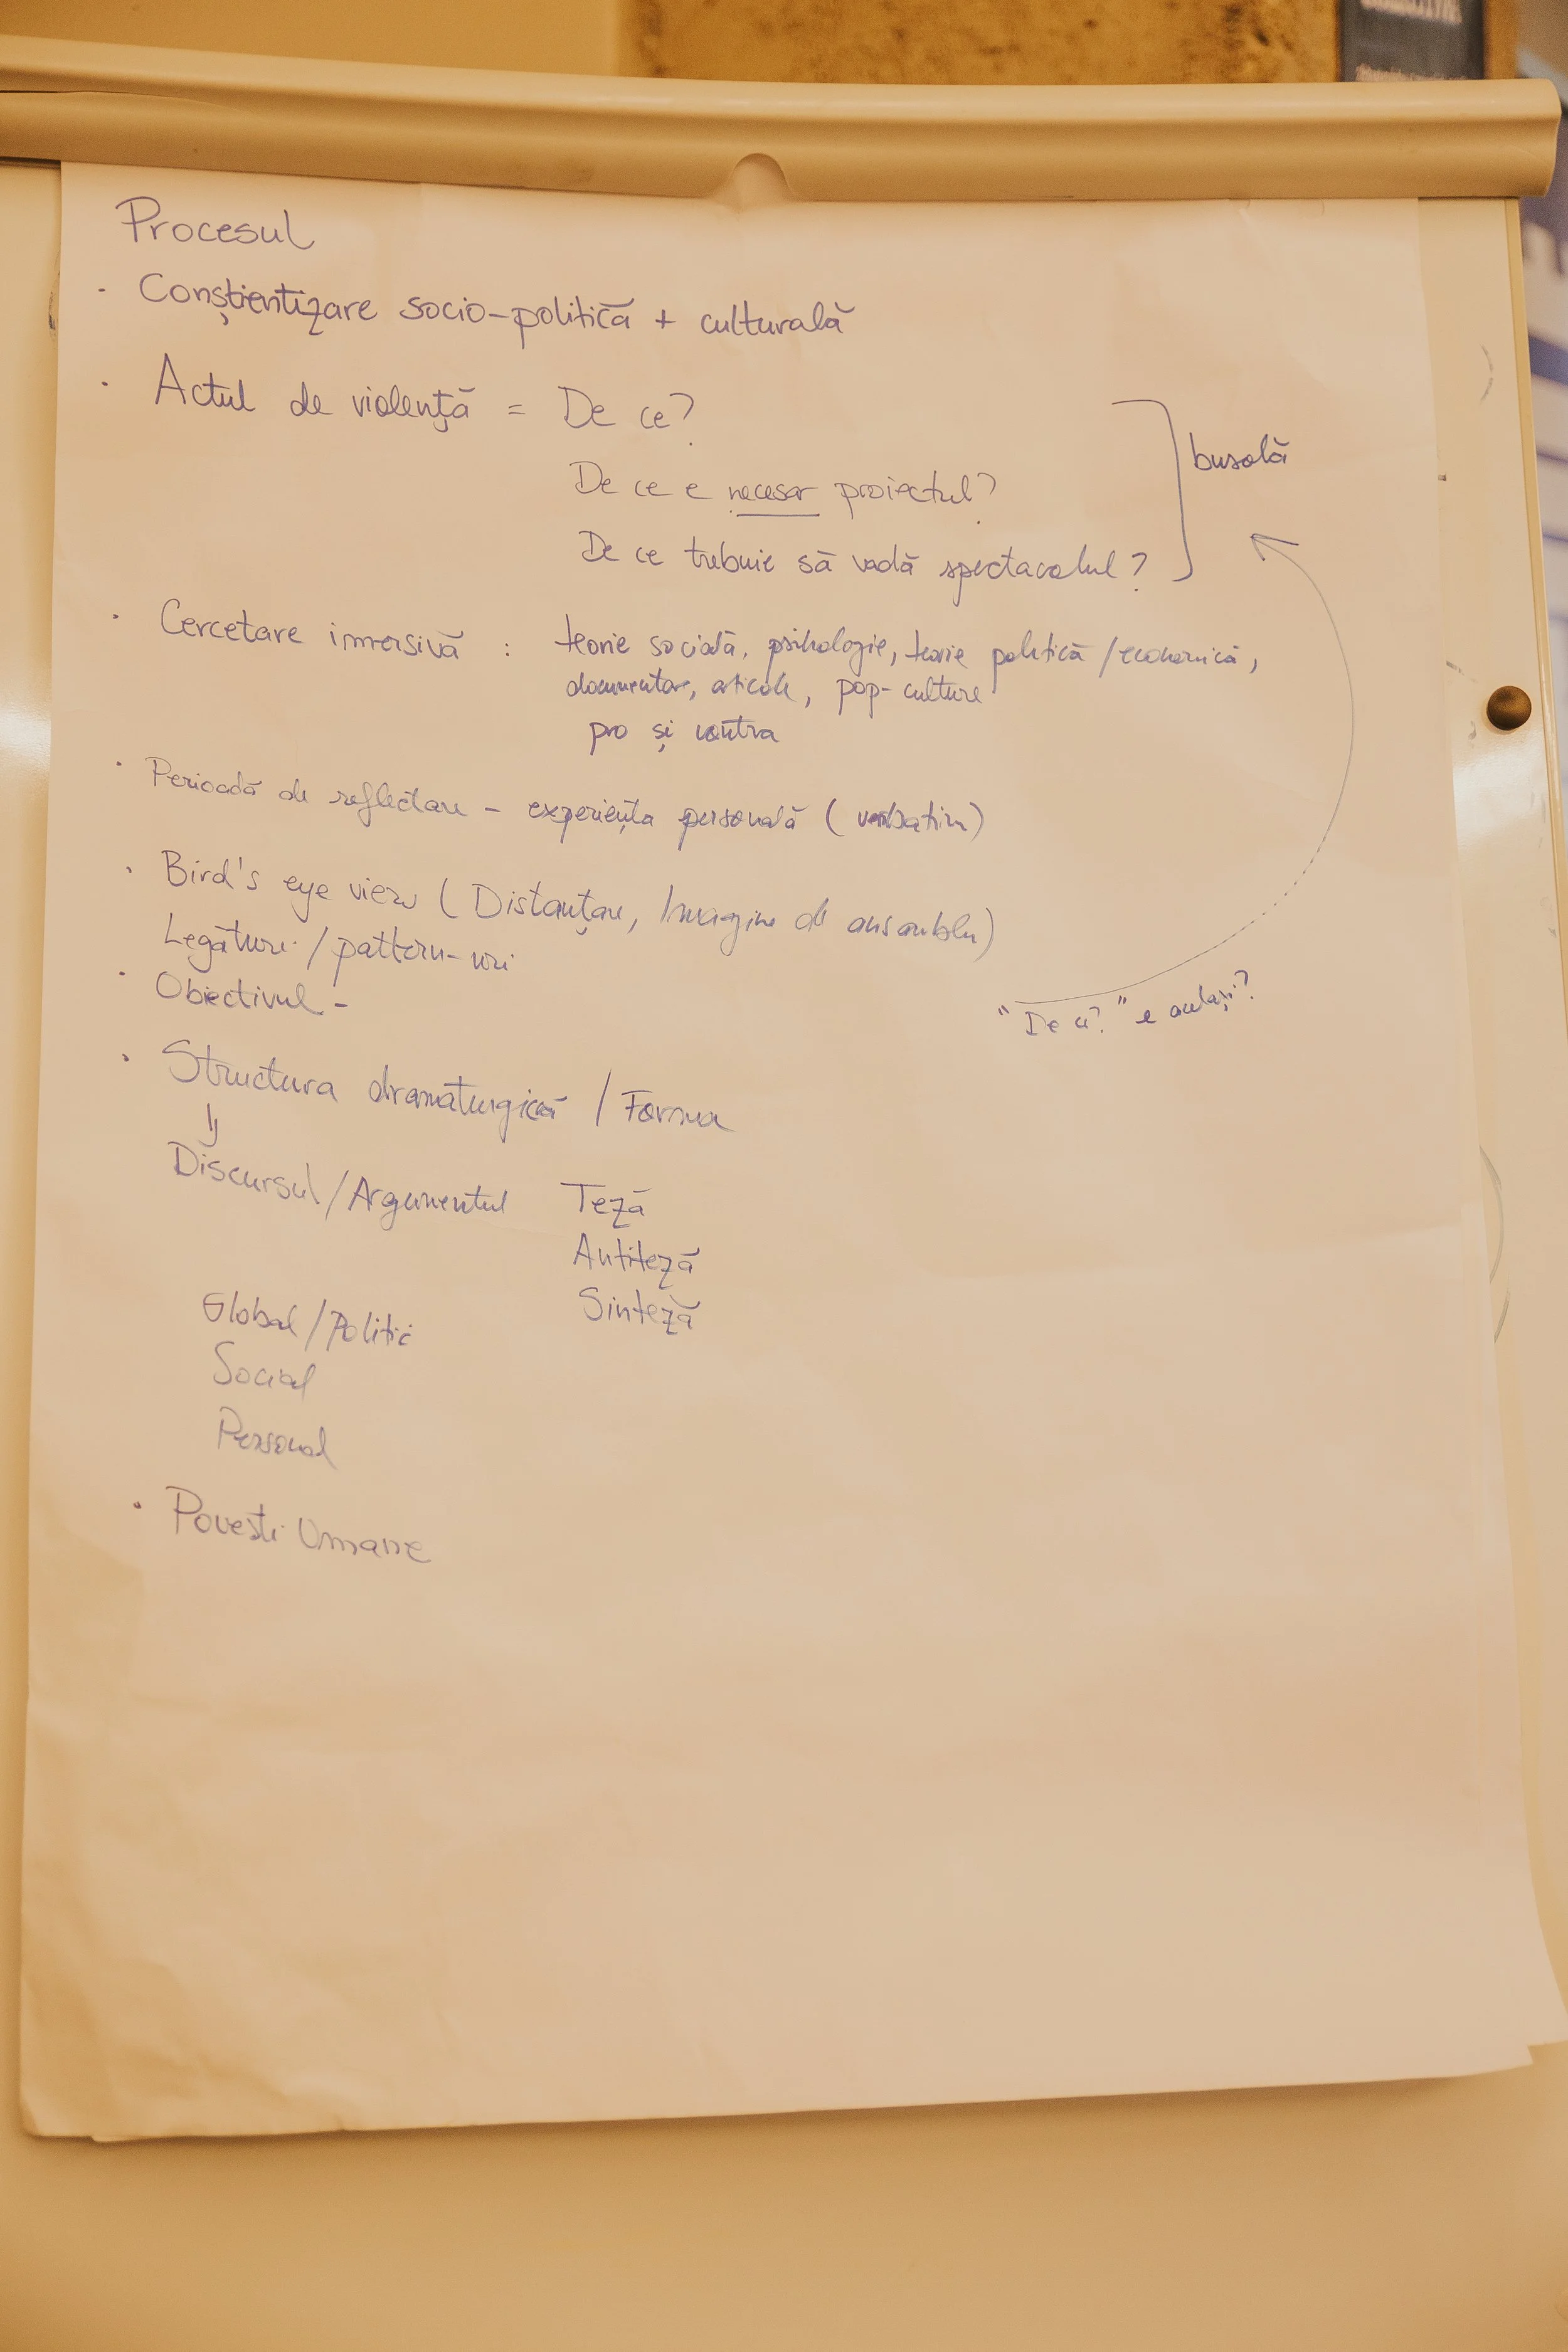 Procesul
· Conștientizare socio-politică + culturală
· Actul de violență = De ce?
De ce e necesar proiectul?
De ce trebuie să vadă spectacolul?
busolă
· Cercetare imersivă : teorie socială, psihologie, teorie politică / economică,
documentare, articole, pop-culture
pro și contra
· Perioadă de reflectare - experiența personală (verbatim)
· Bird's eye view (Distanțare, Imagine de ansamblu)
Legături / pattern-uri
· Obiectivul -
"De ce?" e același?
· Structura dramaturgică / Forma
Discursul / Argumentul Teză
Antiteză
Sinteză
Global / Politic
Social
Personal
· Povești Umane